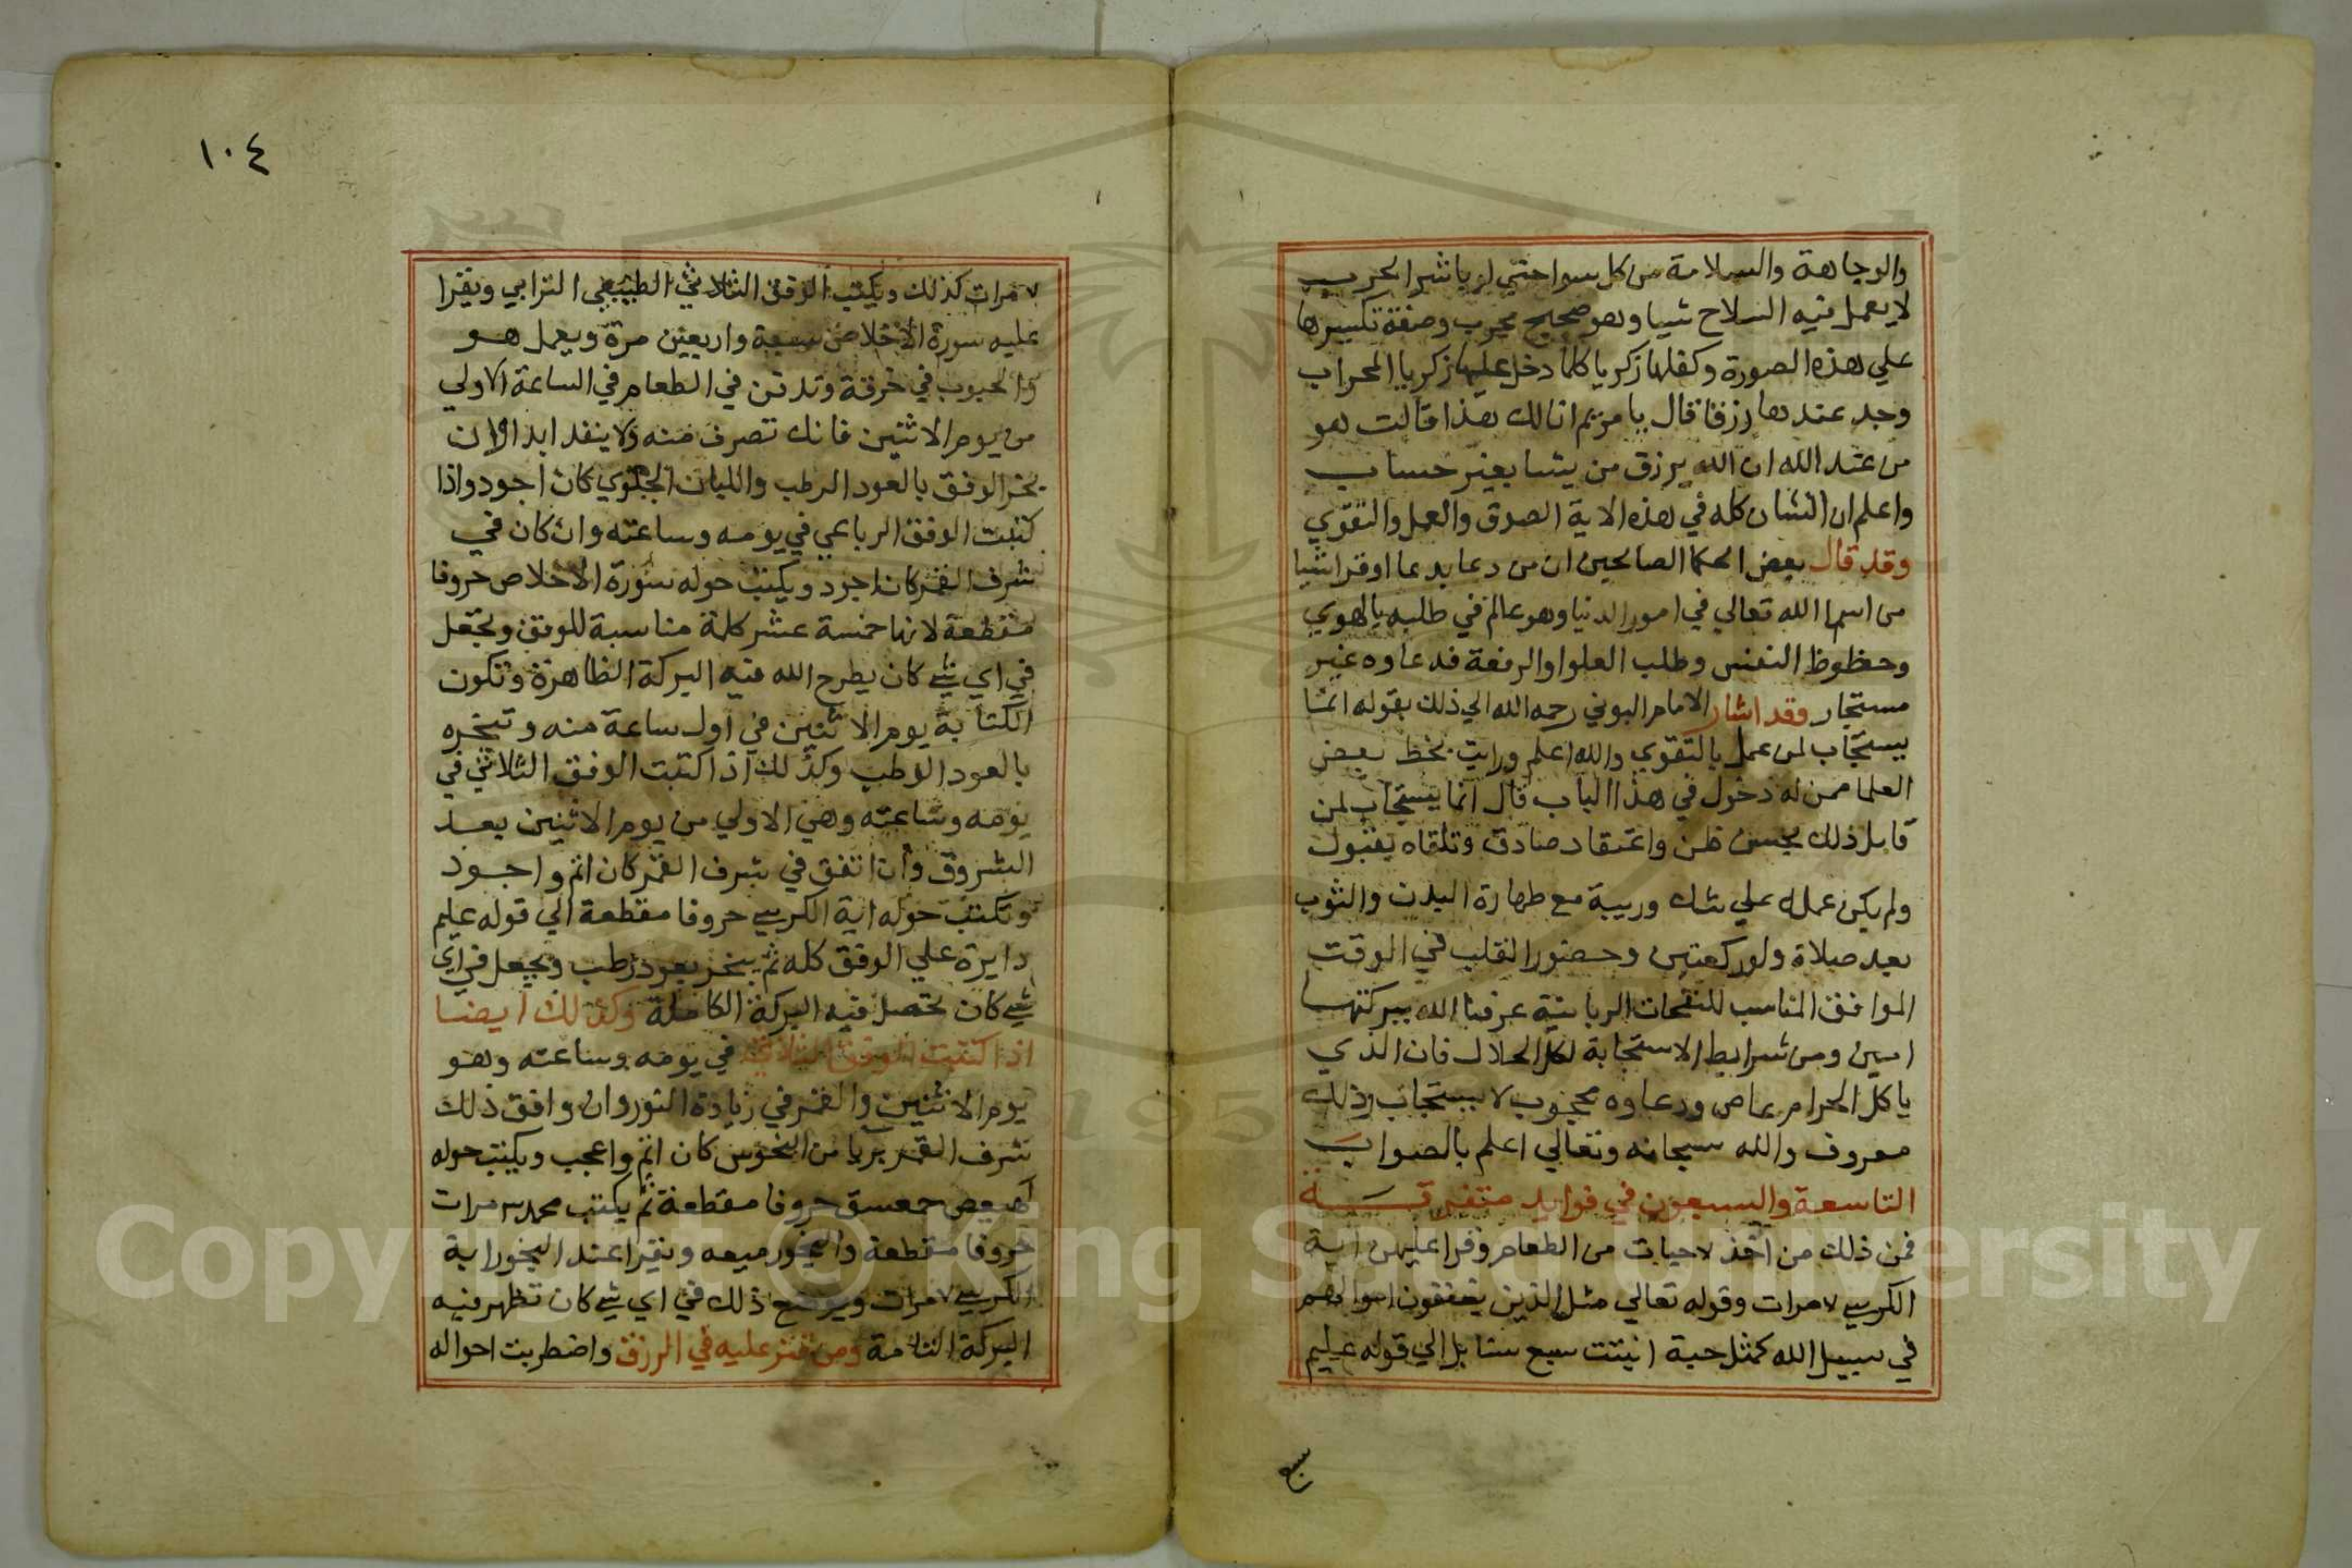 والوجاهة والسلامة من كل سوا حتي لو باشر الحرب
لا يعمل فيه السلاح شيا وهو صحيح مجرب وصفة تكسيرها
علي هذه الصورة وكفلها زكريا كلما دخل عليها زكريا المحراب
وجد عندها رزقا قال يا مريم انا لك هذا قالت هو
من عند الله ان الله يرزق من يشا بغير حساب
واعلم ان الشان كله في هذه الاية الصدق والعمل والتقوي
وقد قال بعض الحكما الصالحين ان من دعا بدعا او قرا شيا
من اسما الله تعالي في امور الدنيا وهو عالم في طلبه بالهوي
وحظوظ النفس وطلب العلوا والرفعة فدعاوه غير
مستجاب وقد اشار الامام البوني رحمه الله الي ذلك بقوله انما
يستجاب لمن عمل بالتقوي والله اعلم ورايت بخط بعض
العلما ممن له دخول في هذا الباب قال انما يستجاب لمن
قابل ذلك بحسن ظن واعتقاد صادق وتلقاه بقبول
ولم يكن عمله علي شك وريبة مع طهارة البدن والثوب
بعد صلاة ولو ركعتين وحضور القلب في الوقت
الموافق المناسب للنفحات الربانية عرفنا الله ببركتها
امين ومن شرايط الاستجابة اكل الحلال فان الذي
ياكل الحرام عاص ودعاوه محجوب لا يستجاب وذلك
معروف والله سبحانه وتعالي اعلم بالصواب
التاسعة والسبعون في فوايد متفرقة
فمن ذلك من اخذ ٧ حبات من الطعام وقرا عليهن اية
الكرسي ٧ مرات وقوله تعالي مثل الذين ينفقون اموالهم
في سبيل الله كمثل حبة انبتت سبع سنابل الي قوله عليم
سبع
١٠٤
٧ مرات كذلك ويكتب الوفق الثلاثي الطبيعي الترابي ويقرا
عليه سورة الاخلاص سبعة واربعين مرة ويعمل هو
والحبوب في خرقة وتدفن في الطعام في الساعة الاولي
من يوم الاثنين فانك تصرف منه ولا ينفد ابدا وان
بخر الوفق بالعود الرطب واللبان كان اجود واذا
كتبت الوفق الرباعي في يومه وساعته وان كان في
شرف القمر كان اجود ويكتب حوله سورة الاخلاص حروفا
مقطعة لانها خمسة عشر كلمة مناسبة للوفق وتجعل
في اي شي كان يطرح الله فيه البركة الظاهرة وتكون
الكتابة يوم الاثنين في اول ساعة منه وتبخره
بالعود الرطب وكذلك اذا كتبت الوفق الثلاثي في
يومه وساعته وهي الاولي من يوم الاثنين بعد
الشروق وان اتفق في شرف القمر كان اتم واجود
وتكتب حوله اية الكرسي حروفا مقطعة الي قوله عليم
دايرة علي الوفق كله ثم يبخر بعود رطب ويجعل في اي
شي كان تحصل فيه البركة الكاملة وكذلك ايضا
اذا كتبت الوفق الثلاثي في يومه وساعته وهو
يوم الاثنين والقمر في زيادة النور وان وافق ذلك
شرف القمر بريا من النحوس كان اتم واعجب ويكتب حوله
كهيعص حمعسق حروفا مقطعة ثم يكتب محمد ٣ مرات
حروفا مقطعة والبخور ميعه ويقرا عند البخور اية
الكرسي ٧ مرات ويوضع ذلك في اي شي كان تظهر فيه
البركة التامة ومن قتر عليه في الرزق واضطربت احواله
Copyright © King Saud University
195